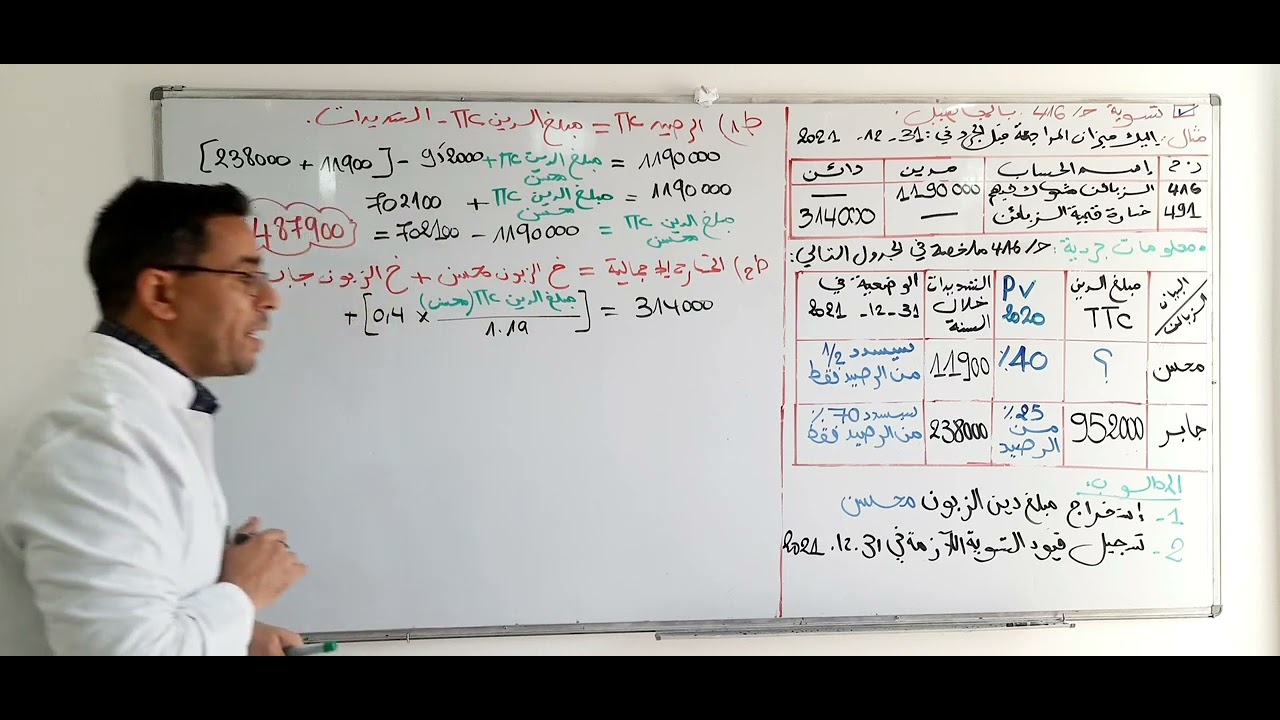 تسوية ح/ 416 بالمجاهيل.
مثال: إليك ميزان المراجعة قبل الجرد في: 31 - 12 - 2021
ر ح | إسم الحساب | مدين | دائن
416 | الزبائن المشكوك فيهم | 1190 000 | —
491 | خسارة قيمة الزبائن | — | 314000
• معلومات جردية: ح/ 416 ملخصة في الجدول التالي:
البيان
الزبائن
مبلغ الدين TTC
PV 2020
التسديدات خلال السنة
الوضعية في 31 - 12 - 2021
محسن | ؟ | 40٪ | 11900 | سيسدد 1/2 من الرصيد فقط
جابر | 952000 | 25٪ من الرصيد | 238000 | سيسدد 70٪ من الرصيد فقط
المطلوب:
1- إستخراج مبلغ دين الزبون محسن
2- تسجيل قيود التسوية اللازمة في 31 . 12 . 2021
ط1) الرصيد TTC = مبلغ الدين TTC - التسديدات.
1190 000 = مبلغ الدين TTC محسن + 952000 - [11900 + 238000]
1190 000 = مبلغ الدين TTC محسن + 702100
مبلغ الدين TTC محسن = 1190 000 - 702100 = 487900
ط2) الخسارة الإجمالية = خ الزبون محسن + خ الزبون جابر
314000 = [0,4 × مبلغ الدين TTC (محسن) / 1.19] +